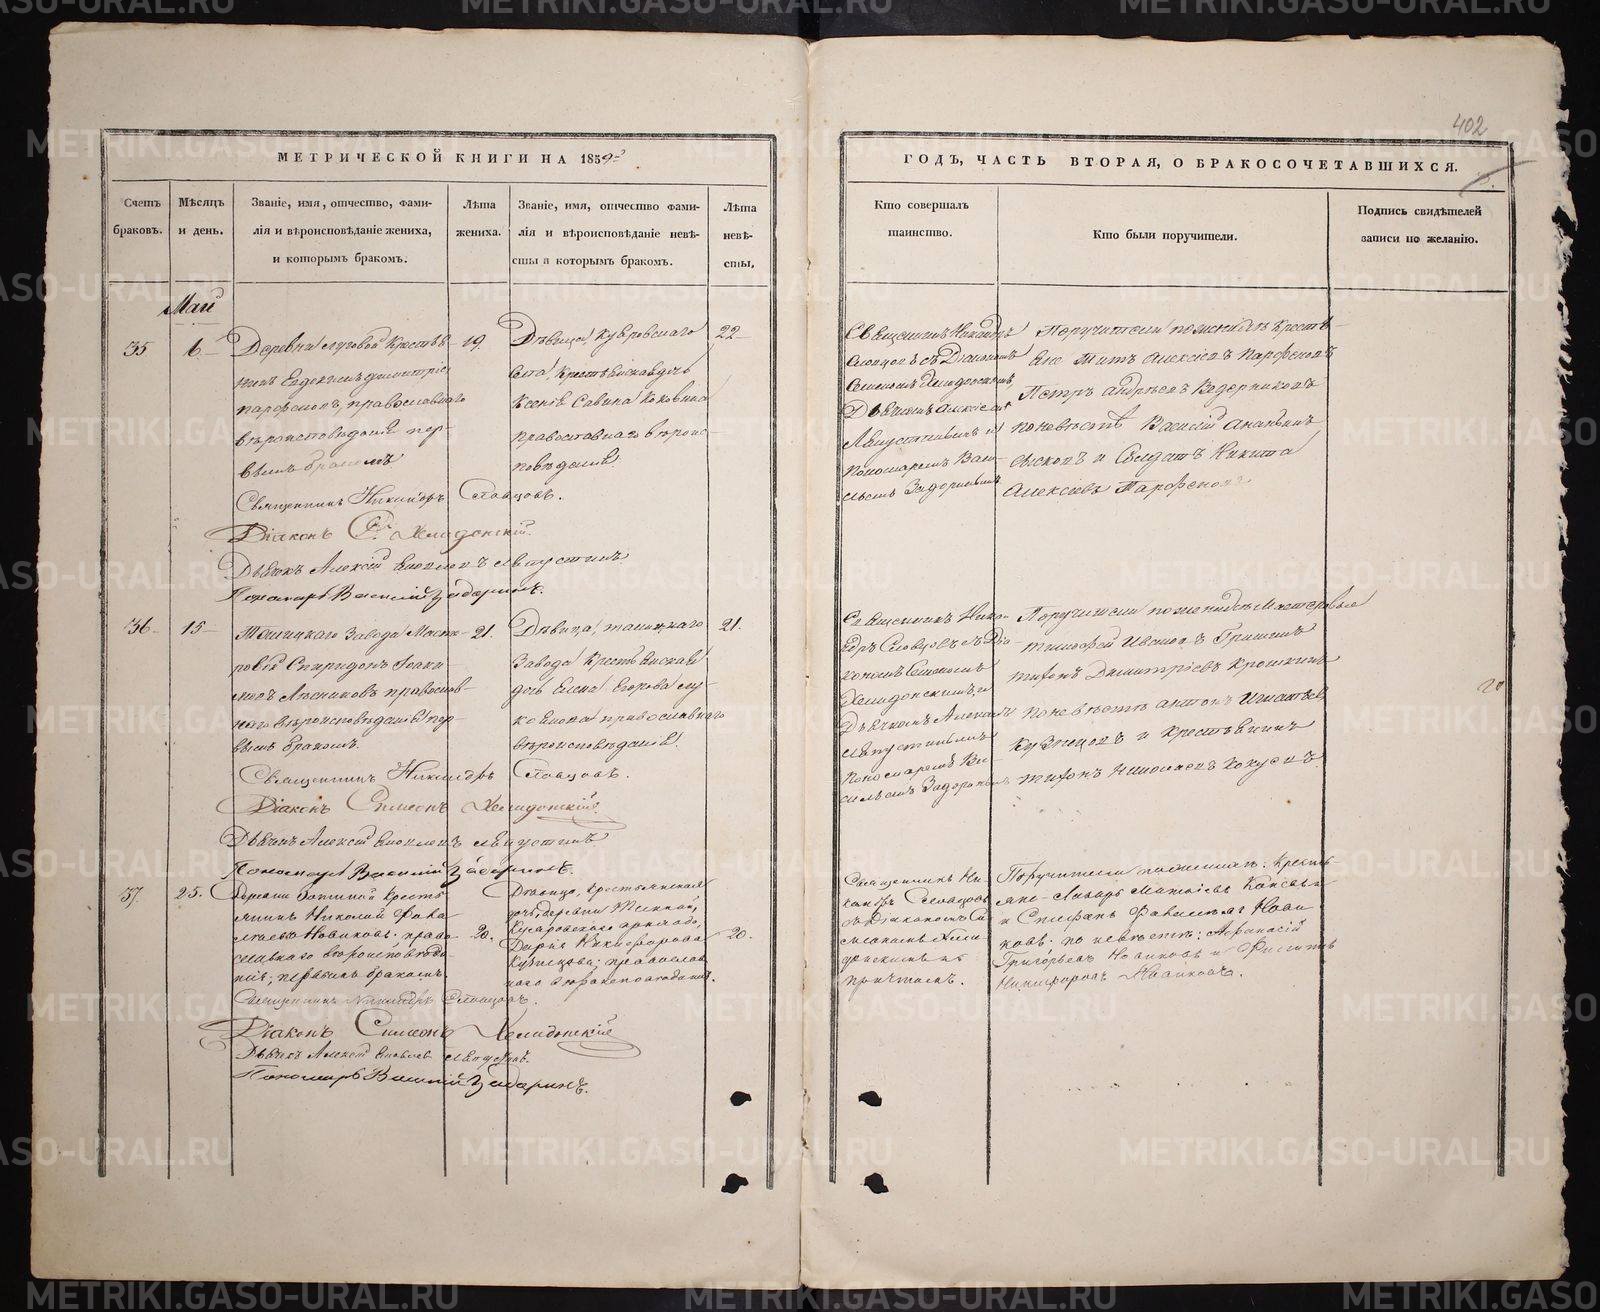 402
МЕТРИЧЕСКОЙ КНИГИ НА 1859 г
ГОДЪ, ЧАСТЬ ВТОРАЯ, О БРАКОСОЧЕТАВШИХСЯ.
Счетъ браковъ.
Мѣсяцъ и день.
Званіе, имя, отчество, фами-
лія и вѣроисповѣданіе жениха,
и которымъ бракомъ.
Лѣта жениха.
Званіе, имя, отчество фами-
лія и вѣроисповѣданіе невѣ-
сты и которымъ бракомъ.
Лѣта невѣ-
сты,
Кто совершалъ
таинство.
Кто были поручители.
Подпись свидѣтелей
записи по желанію.
Май
35
6
Деревни Луговой Крестья
нинъ Евдокимъ Димитріе
Парфеновъ, православнаго
вѣроисповѣданія пер-
вымъ бракомъ
19.
Дѣвица
села, Крестьянская дочь
Ксенія Савина Коковина
православнаго вѣроис-
повѣданія
22
Священникъ Никандръ
Словцовъ съ Діакономъ
Симеономъ Хелидонскимъ,
Дьячкомъ Алексіемъ
Августинымъ и
Пономаремъ Васи-
льемъ Задоринымъ
Поручители по женихѣ Кресть-
яне Титъ Алексіевъ Парфеновъ
Петръ Андреевъ Ведерниковъ
по невѣстѣ Василій Ананьинъ
и Солдатъ Никита
Алексіевъ Парфеновъ
Священникъ Никандръ Словцовъ.
Діаконъ С. Хелидонскій.
Дьячекъ Алексій Августинъ
Пономарь Василій Задоринъ.
36
15
Талицкаго Завода Масте-
ровой Спиридонъ Іоаки-
мовъ Лѣсниковъ православ-
наго вѣроисповѣданія пер-
вымъ бракомъ.
21.
Дѣвица, Талицкаго
Завода Крестьянская
дочь Елена Егорова
православнаго
вѣроисповѣданія.
21.
Священникъ Никан-
дръ Словцовъ съ Діа-
кономъ Симеономъ
Хелидонскимъ, и
Дьячкомъ Алексіемъ
Августинымъ
Пономаремъ Ва-
сильемъ Задоринымъ
Поручители по женихѣ Мастеровые
Тимофей Ивановъ Гришинъ
Тихонъ Димитріевъ Крошкинъ
по невѣстѣ Антонъ Игнатьевъ
Кузнецовъ и крестьянинъ
Тихонъ Николаевъ Кокуринъ
Священникъ Никандръ Словцовъ.
Діаконъ Симеонъ Хелидонскій.
Дьячекъ Алексій Августинъ
Пономарь Василій Задоринъ.
37.
25.
Деревни Кресть-
янинъ Николай
Новиковъ: право-
славнаго вѣроисповѣда-
нія; первымъ бракомъ.
20.
Дѣвица, крестьянская
дочь, деревни
прихода,
Дарья Никифорова
Кузнецова: православ-
наго вѣроисповѣданія.
20.
Священникъ Ни-
кандръ Словцовъ
съ Діакономъ Си-
меономъ Хели-
донскимъ и
причтомъ.
Поручители по женихѣ: Кресть-
яне
и Стефанъ Нови-
ковъ; по невѣстѣ: Афанасій
Григорьевъ Новиковъ и Филиппъ
Никифоровъ Новиковъ.
Священникъ Никандръ Словцовъ.
Діаконъ Симеонъ Хелидонскій
Дьячекъ Алексій Августинъ.
Пономарь Василій Задоринъ.
METRIKI.GASO-URAL.RU